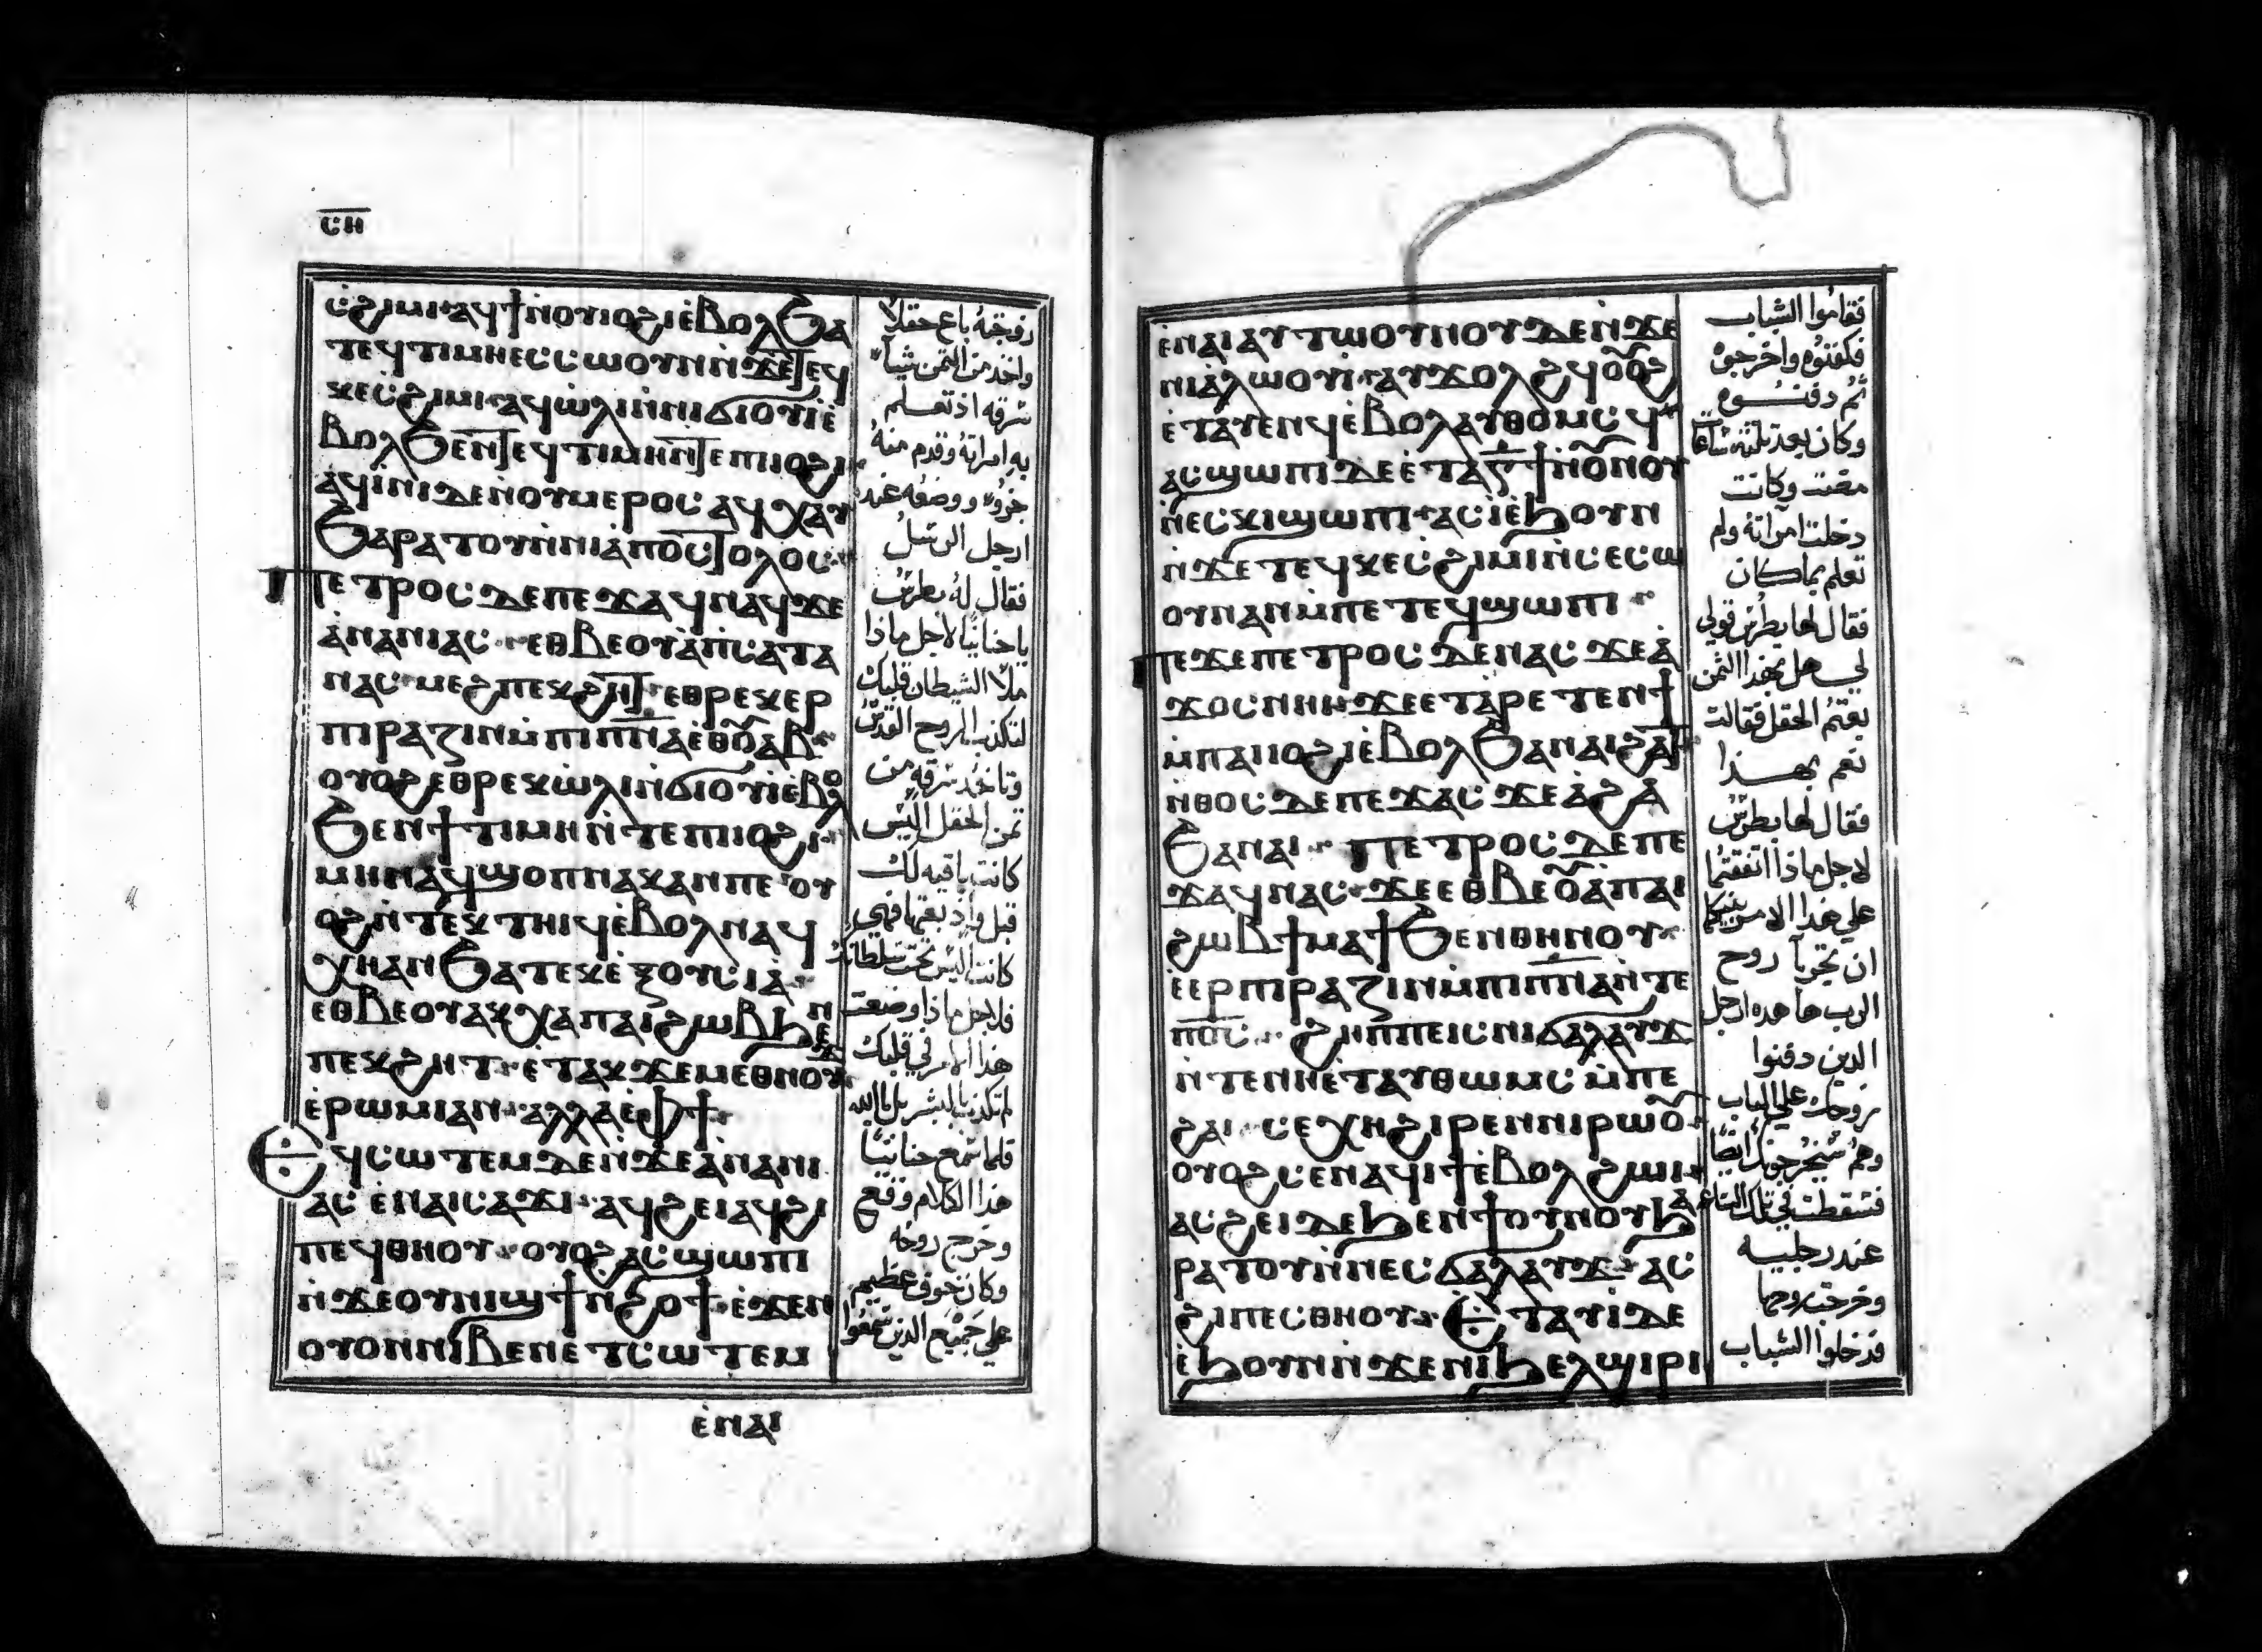 ⲤⲎ
ⲥϩⲓⲙⲓ ⲁϥϯⲛⲟⲩⲓⲟϩⲓⲉ̀ⲃⲟⲗϧⲁ
ⲧⲉϥⲧⲓⲙⲏⲉⲥⲥⲱⲟⲩⲛⲛ̀ϫⲉⲧⲉϥ
ⲕⲉⲥ̀ϩⲓⲙⲓ ⲁϥⲱ̀ⲗⲓⲛ̀ⲛⲓϭⲓⲟⲩⲓⲉ̀
ⲃⲟⲗϧⲉⲛⲧⲉϥⲧⲓⲙⲏⲛⲧⲉⲡⲓⲓⲟϩⲓ
ⲁϥⲓ̀ⲛⲓⲇⲉⲛ̀ⲟⲩⲙⲉⲣⲟⲥ ⲁϥⲭⲁⲩ
ϧⲁⲣⲁⲧⲟⲩⲛ̀ⲛⲓⲁ̀ⲡⲟⲥⲧⲟⲗⲟⲥ
Ⲡⲉⲧⲣⲟⲥ ⲇⲉⲡⲉϫⲁϥⲛⲁϥϫⲉ
ⲁ̀ⲛⲁⲛⲓⲁⲥ ⲉⲑⲃⲉⲟⲩⲁ̀ⲡ̀ⲥⲁⲧⲁ
ⲛⲁⲥ ⲙⲉϩⲡⲉⲕϩⲏⲧ ⲉⲑⲣⲉⲕⲉⲣ
ⲡⲓⲣⲁⲍⲓⲛⲙ̀ⲡⲓⲡ̅ⲛ̅ⲁ̅ⲉⲑⲟ̅ⲩⲁⲃ
ⲟⲩⲟϩⲉⲑⲣⲉⲕⲱ̀ⲗⲓⲛ̀ϭⲓⲟⲩⲓⲉ̀ⲃⲟⲗ
ϧⲉⲛϯⲧⲓⲙⲏⲛ̀ⲧⲉⲡⲓⲓⲟϩⲓ
ⲙⲏⲛⲁϥϣⲟⲡⲛⲁⲕⲁⲛⲡⲉ ⲟⲩ
ⲟϩⲛ̀ⲧⲉⲕⲧⲏⲓϥⲉ̀ⲃⲟⲗⲛⲁϥ
ⲭⲏⲁⲛϧⲁⲧⲉⲕⲉ̀ⲝⲟⲩⲥⲓⲁ
ⲉⲑⲃⲉⲟⲩⲁⲕⲭⲁⲡⲁⲓϩⲱⲃϧⲉⲛ
ⲡⲉⲕϩⲏⲧ ⲉ̀ⲧⲁⲕϫⲉⲙⲉⲑⲛⲟⲩϫ
ⲉ̀ⲣⲱⲙⲓⲁⲛ ⲁⲗⲗⲁⲉ̀ⲫϯ
Ⲉϥⲥⲱⲧⲉⲙⲇⲉⲛ̀ϫⲉⲁ̀ⲛⲁⲛⲓ
ⲁⲥ ⲉ̀ⲛⲁⲓⲥⲁϫⲓ ⲁϥϩⲉⲓⲁϥϩⲓ
ⲡⲉϥⲑⲏⲟⲩ ⲟⲩⲟϩⲁⲥϣⲱⲡⲓ
ⲛ̀ϫⲉⲟⲩⲛⲓϣϯⲛϩⲟϯ ⲉ̀ϫⲉⲛ
ⲟⲩⲟⲛⲛⲓⲃⲉⲛⲉⲧⲥⲱⲧⲉⲙ
ⲉ̀ⲛⲁⲓ
وزوجته باع حقلاً
واخذ من الثمن شيئاً
سرقه اذ تعلم
به امراته وقدم منه
جزوً ووضعه عند
ارجل الرسل
فقال له بطرس
يا حنانيّا لاجل ماذا
ملأ الشيطان قلبك
لتكذب بالروح القدس
وتاخد سرقه من
ثمن الحقل اليس
كانت باقيه لك
قبل واذ بعتها فهي
كانت اليس تحت سلطانك
فلاجل ماذا وضعت
هذا الامر في قلبك
لم تكذب بالبشر بل بالله
فلما سمع حنانيّا
هذا الكلام وقع
وخرج روحه
وكان خوف عظيم
علي جميع الذين سمعوا
ⲉ̀ⲛⲁⲓⲁⲩⲧⲱⲟⲩⲛⲟⲩⲇⲉⲛ̀ϫⲉ
ⲛⲓⲁ̀ⲗⲱⲟⲩⲓ̀ ⲁⲩϫⲟⲗϩϥⲟ̅ⲩⲟϩ
ⲉ̀ⲧⲁⲩⲉⲛϥⲉ̀ⲃⲟⲗⲁⲩⲑⲟⲙⲥϥ
ⲁⲥϣⲱⲡⲓⲇⲉⲉ̀ⲧⲁⲅ̅ϯⲛ̀ⲟ̅ⲩⲛⲟⲩ
ⲛ̀ⲉⲥⲕⲓϣⲱⲡⲓ ⲁⲥⲓ̀ⲉ̀ϧⲟⲩⲛ
ⲛ̀ϫⲉⲧⲉϥⲕⲉⲥϩⲓⲙⲓⲛ̀ⲥⲉⲥⲱ
ⲟⲩⲛⲁⲛⲙ̀ⲡⲉⲧⲉϥϣⲱⲡⲓ
Ⲡⲉϫⲉⲡⲉⲧⲣⲟⲥ ⲇⲉⲛⲁⲥ ϫⲉⲁ̀
ϫⲟⲥⲛⲏⲓ ϫⲉⲉⲧⲁ̀ⲣⲉⲧⲉⲛϯ
ⲙ̀ⲡⲁⲓⲓⲟϩⲓⲉ̀ⲃⲟⲗϧⲁⲛⲁⲓϩⲁⲧ
ⲛⲑⲟⲥ ⲇⲉⲡⲉϫⲁⲥ ϫⲉⲁ̀ϩⲁ̀
ϧⲁⲛⲁⲓ Ⲡⲉⲧⲣⲟⲥ ⲇⲉⲡⲉ
ϫⲁϥⲛⲁⲥ ϫⲉⲉⲑⲃⲉⲟ̅ⲩⲁ̀ⲡⲁⲓ
ϩⲱⲃϯⲙⲁϯϧⲉⲛⲑⲏⲛⲟⲩ
ⲉ̀ⲉⲣⲡⲓⲣⲁⲍⲓⲛⲙ̀ⲡⲓⲡ̅ⲛ̅ⲁ̅ⲛ̀ⲧⲉ
ⲡ̅ⲟ̅ⲥ̅ ϩⲏⲡⲡⲉⲓⲥⲛⲓϭⲁⲗⲁⲩϫ
ⲛ̀ⲧⲉⲛⲏⲉ̀ⲧⲁⲩⲑⲱⲙⲥ ⲙ̀ⲡⲉ
ϩⲁⲓ ⲥⲉⲭⲏϩⲓⲣⲉⲛⲛⲓⲣⲱⲟ̅ⲩ
ⲟⲩⲟϩⲥⲉⲛⲁϥⲓϯⲉ̀ⲃⲟⲗϩⲱⲓ
ⲁⲥϩⲉⲓⲇⲉϧⲉⲛϯⲟⲩⲛⲟⲩϧⲁ
ⲣⲁⲧⲟⲩⲛ̀ⲛⲉⲥϭⲁⲗⲁⲩϫ ⲁⲥ
ϩⲓⲡⲉⲥⲑⲏⲟⲩ Ⲉⲧⲁⲩⲓ̀ⲇⲉ
ⲉ̀ϧⲟⲩⲛⲛ̀ϫⲉⲛⲓϧⲉⲗϣⲓⲣⲓ
فقاموا الشباب
فكفنوه واخرجوه
ثم دفنوه
وكان بعد ثلثه ساعات
مضت وكانت
دخلت امراته ولم
تعلم بما كان
فقال لها بطرس قولي
لي هل بهذا الثمن
بعتم الحقل فقالت
نعم بهذا
فقال لها بطرس
لاجل ماذا اتفقتما
علي هذا الامر بينكما
ان تجربا روح
الرب ها هوذا ارجل
الذين دفنوا
زوجك علي الباب
وهم سيخرجونك ايضًا
فسقطت في تلك الساعه
عند رجليه
وخرجت روحها
فدخلوا الشباب